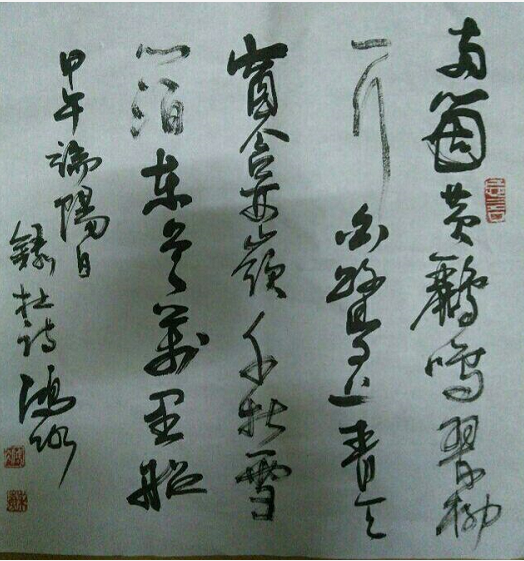 两箇黄鸝鳴翠柳
一行白鷺上青天
窗含西嶺千秋雪
门泊东吴萬里船
甲午端陽日
錄杜诗鸿